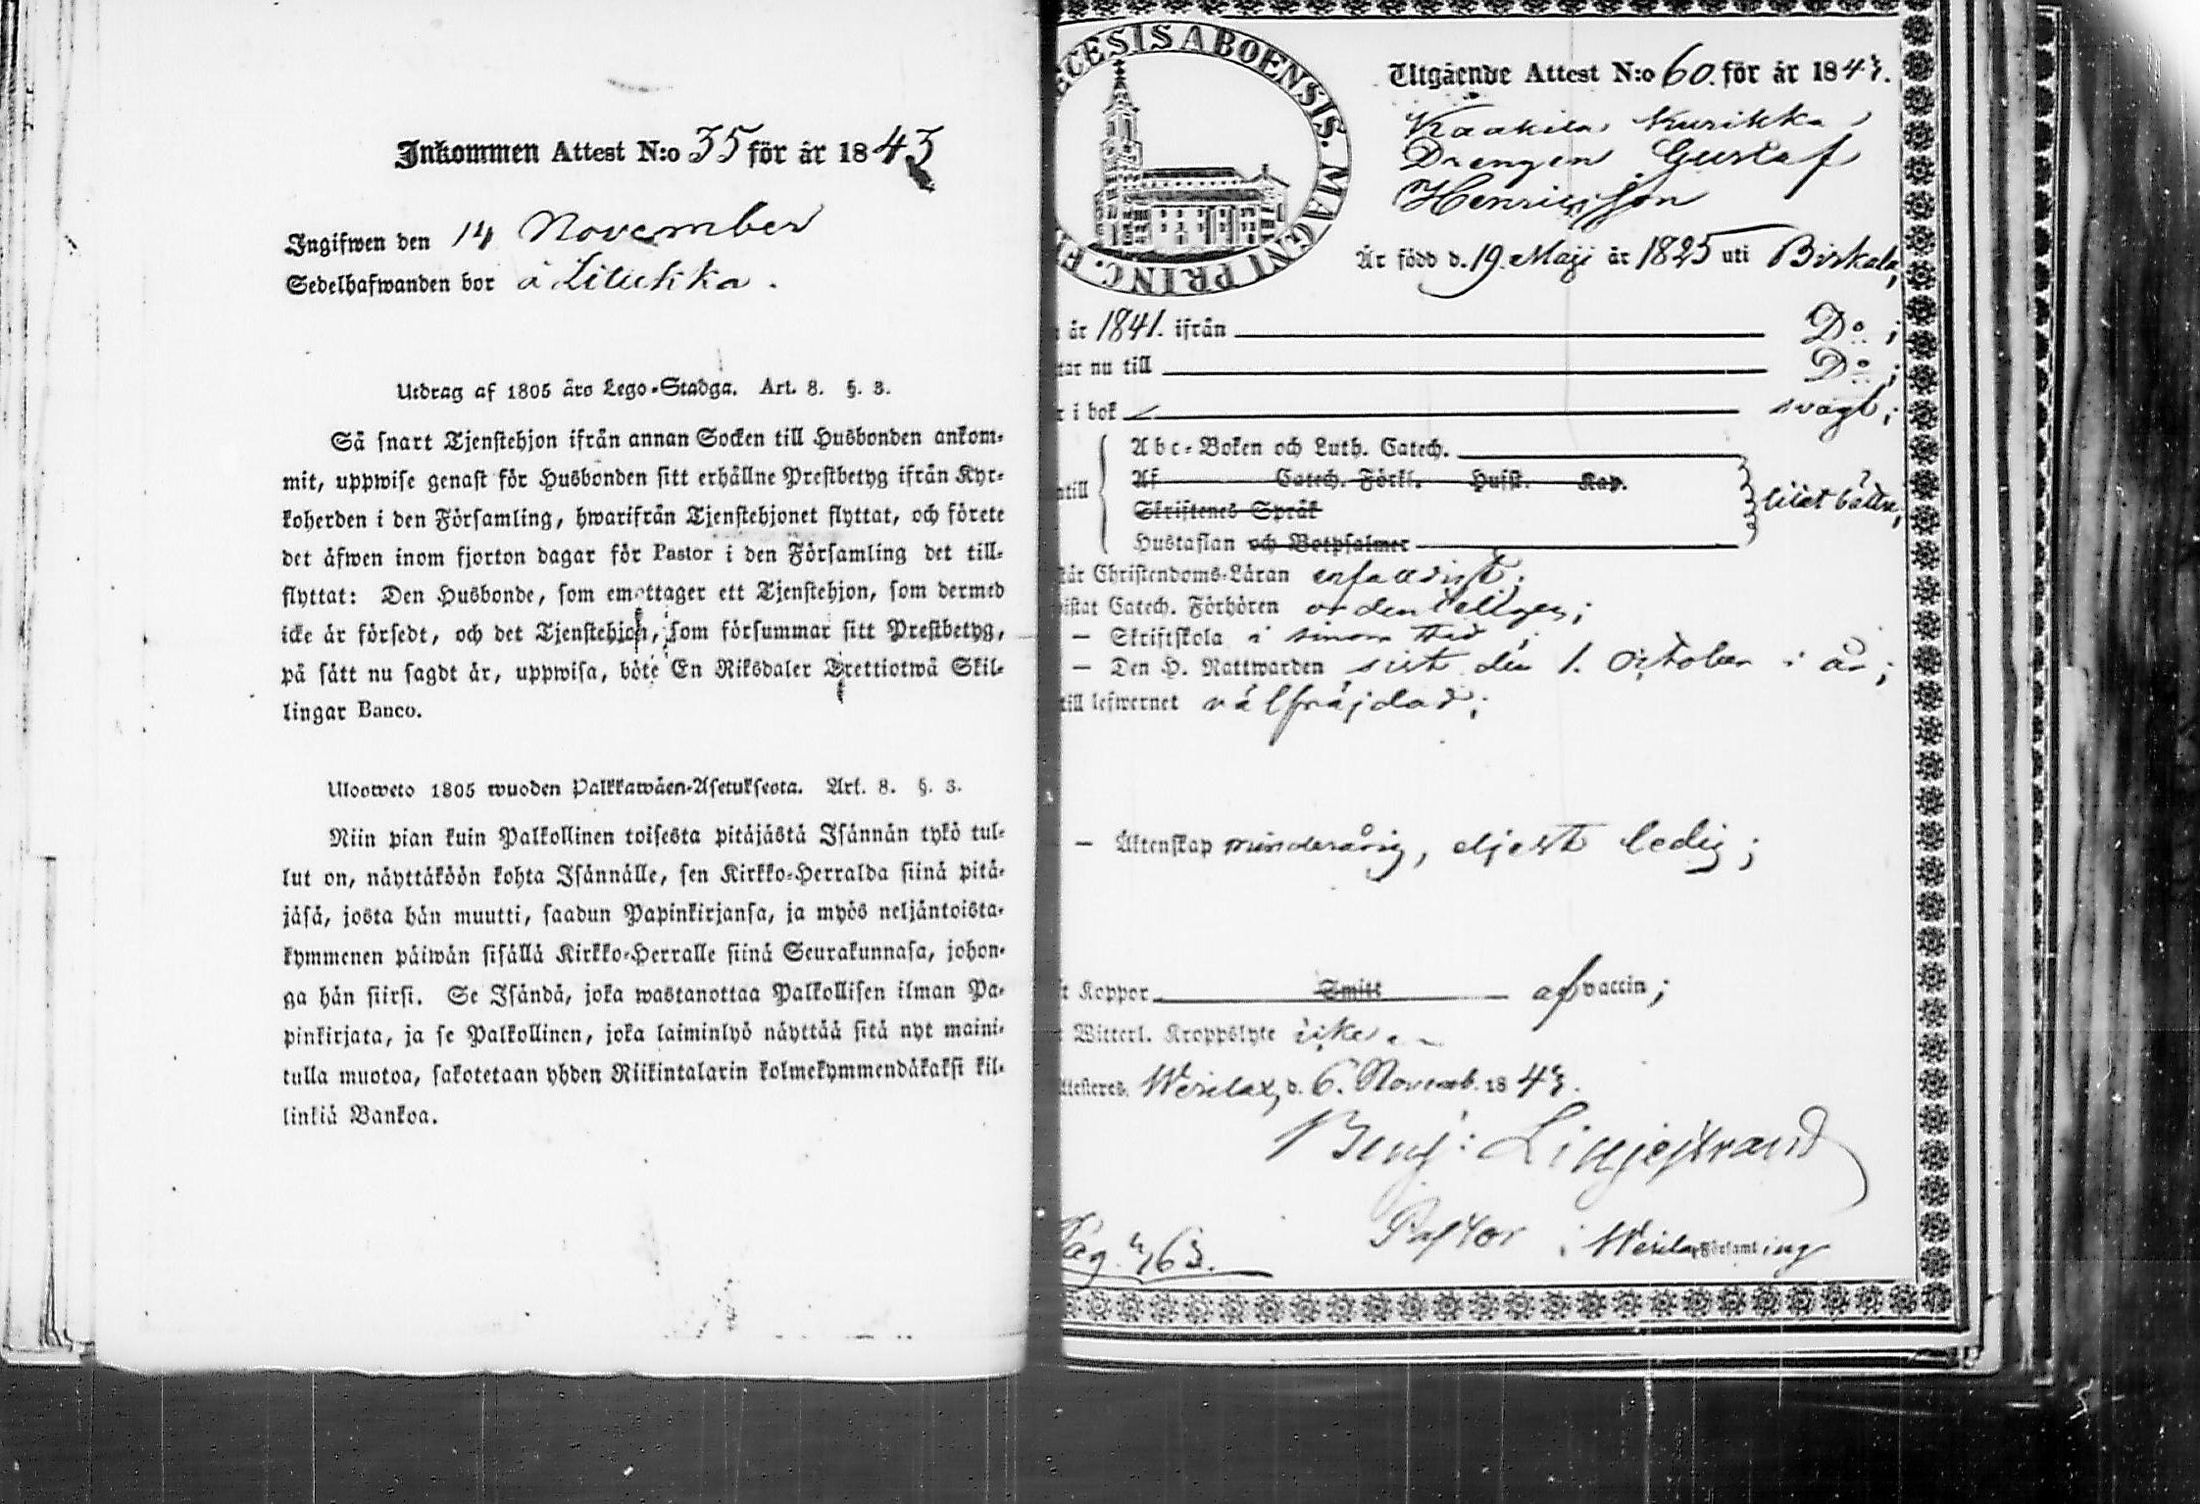 Inkommen Attest N:o 35 för år 1843
Ingifwen den 14 November
Sedelhafwanden bor å Liukka.
Utdrag af 1805 års Lego-Stadga. Art. 8. §. 3.
Så snart Tjenstehjon ifrån annan Socken till Husbonden ankom-
mit, uppwise genast för Husbonden sitt erhållne Prestbetyg ifrån Kyr-
koherden i den Församling, hwarifrån Tjenstehjonet flyttat, och förete
det äfwen inom fjorton dagar för Pastor i den Församling det till-
flyttat: Den Husbonde, som emottager ett Tjenstehjon, som dermed
icke är försedt, och det Tjenstehjon, som försummar sitt Prestbetyg,
på sätt nu sagdt är, uppwisa, böte En Riksdaler Trettiotwå Skil-
lingar Banco.
Uloosweto 1805 wuoden Palkkawäen-Asetuksesta. Art. 8. §. 3.
Niin pian kuin Palkollinen toisesta pitäjästä Isännän tykö tul-
lut on, näyttäköön kohta Isännälle, sen Kirkko-Herralda siinä pitä-
jäsä, josta hän muutti, saadun Papinkirjansa, ja myös neljäntoista-
kymmenen päiwän sisällä Kirkko-Herralle siinä Seurakunnasa, johon-
ga hän siirsi. Se Isändä, joka wastanottaa Palkollisen ilman Pa-
pinkirjata, ja se Palkollinen, joka laiminlyö näyttää sitä nyt maini-
tulla muotoa, sakotetaan yhden Riikintalarin kolmekymmendäkaksi kil-
linkiä Bankoa.
ECESIS ABOENSIS. MAGNI PRINC. F
Utgående Attest N:o 60. för år 1843.
Kaakila Kurikka
Drengen Gustaf
Henricsson
Är född d. 19. Maji år 1825 uti Birkala,
år 1841. ifrån D:o;
tar nu till D:o;
r i bok svagt;
Abc-Boken och Luth. Catech.
Af Catech. Förkl. Husst. Kap.
ntill litet bättre,
Skriftenes Språk
Hustaflan och Botpsalmer
tår Christendoms-Läran enfaldigt;
istat Catech. Förhören ordenteligen;
— Skriftskola i sinom tid;
— Den H. Nattwarden sist den 1. October i år;
till lefwernet välfräjdad;
— Äktenskap minderårig, eljest ledig;
t Koppor Smitt af vaccin;
t Witterl. Kroppslyte icke.
ttesteres. Wesilax, d. 6. Novemb. 1843.
Benj: Liljestrand
Pastor i Wesilax Församling
Pag. 463.